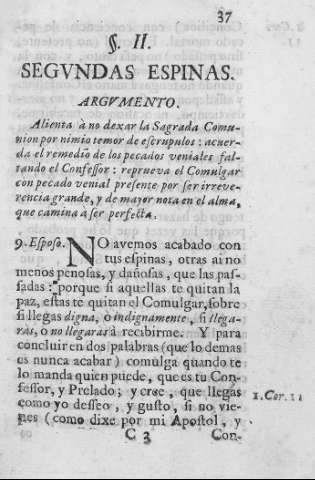 37
§. II.
SEGVNDAS ESPINAS.
ARGVMENTO.
Alienta à no dexar la Sagrada Comu-
nion por nimio temor de escrupulos: acuer-
da el remedio de los pecados veniales fal-
tando el Confessor: reprueva el Comulgar
con pecado venial presente por ser irreve-
rencia grande, y de mayor nota en el alma,
que camina a ser perfecta.
9. Esposo. NO avemos acabado con
tus espinas, otras ai no
menos penosas, y dañosas, que las pas-
sadas: porque si aquellas te quitan la
paz, estas te quitan el Comulgar, sobre
si llegas digna, o indignamente, si llega-
ras, o no llegaras à recibirme. Y para
concluir en dos palabras (que lo demas
es nunca acabar) comulga quando te
lo manda quien puede, que es tu Con-
fessor, y Prelado; y cree, que llegas
como yo desseo, y gusto, si no vie-
nes (como dixe por mi Apostol, y
1. Cor. 11
C 3 Con-